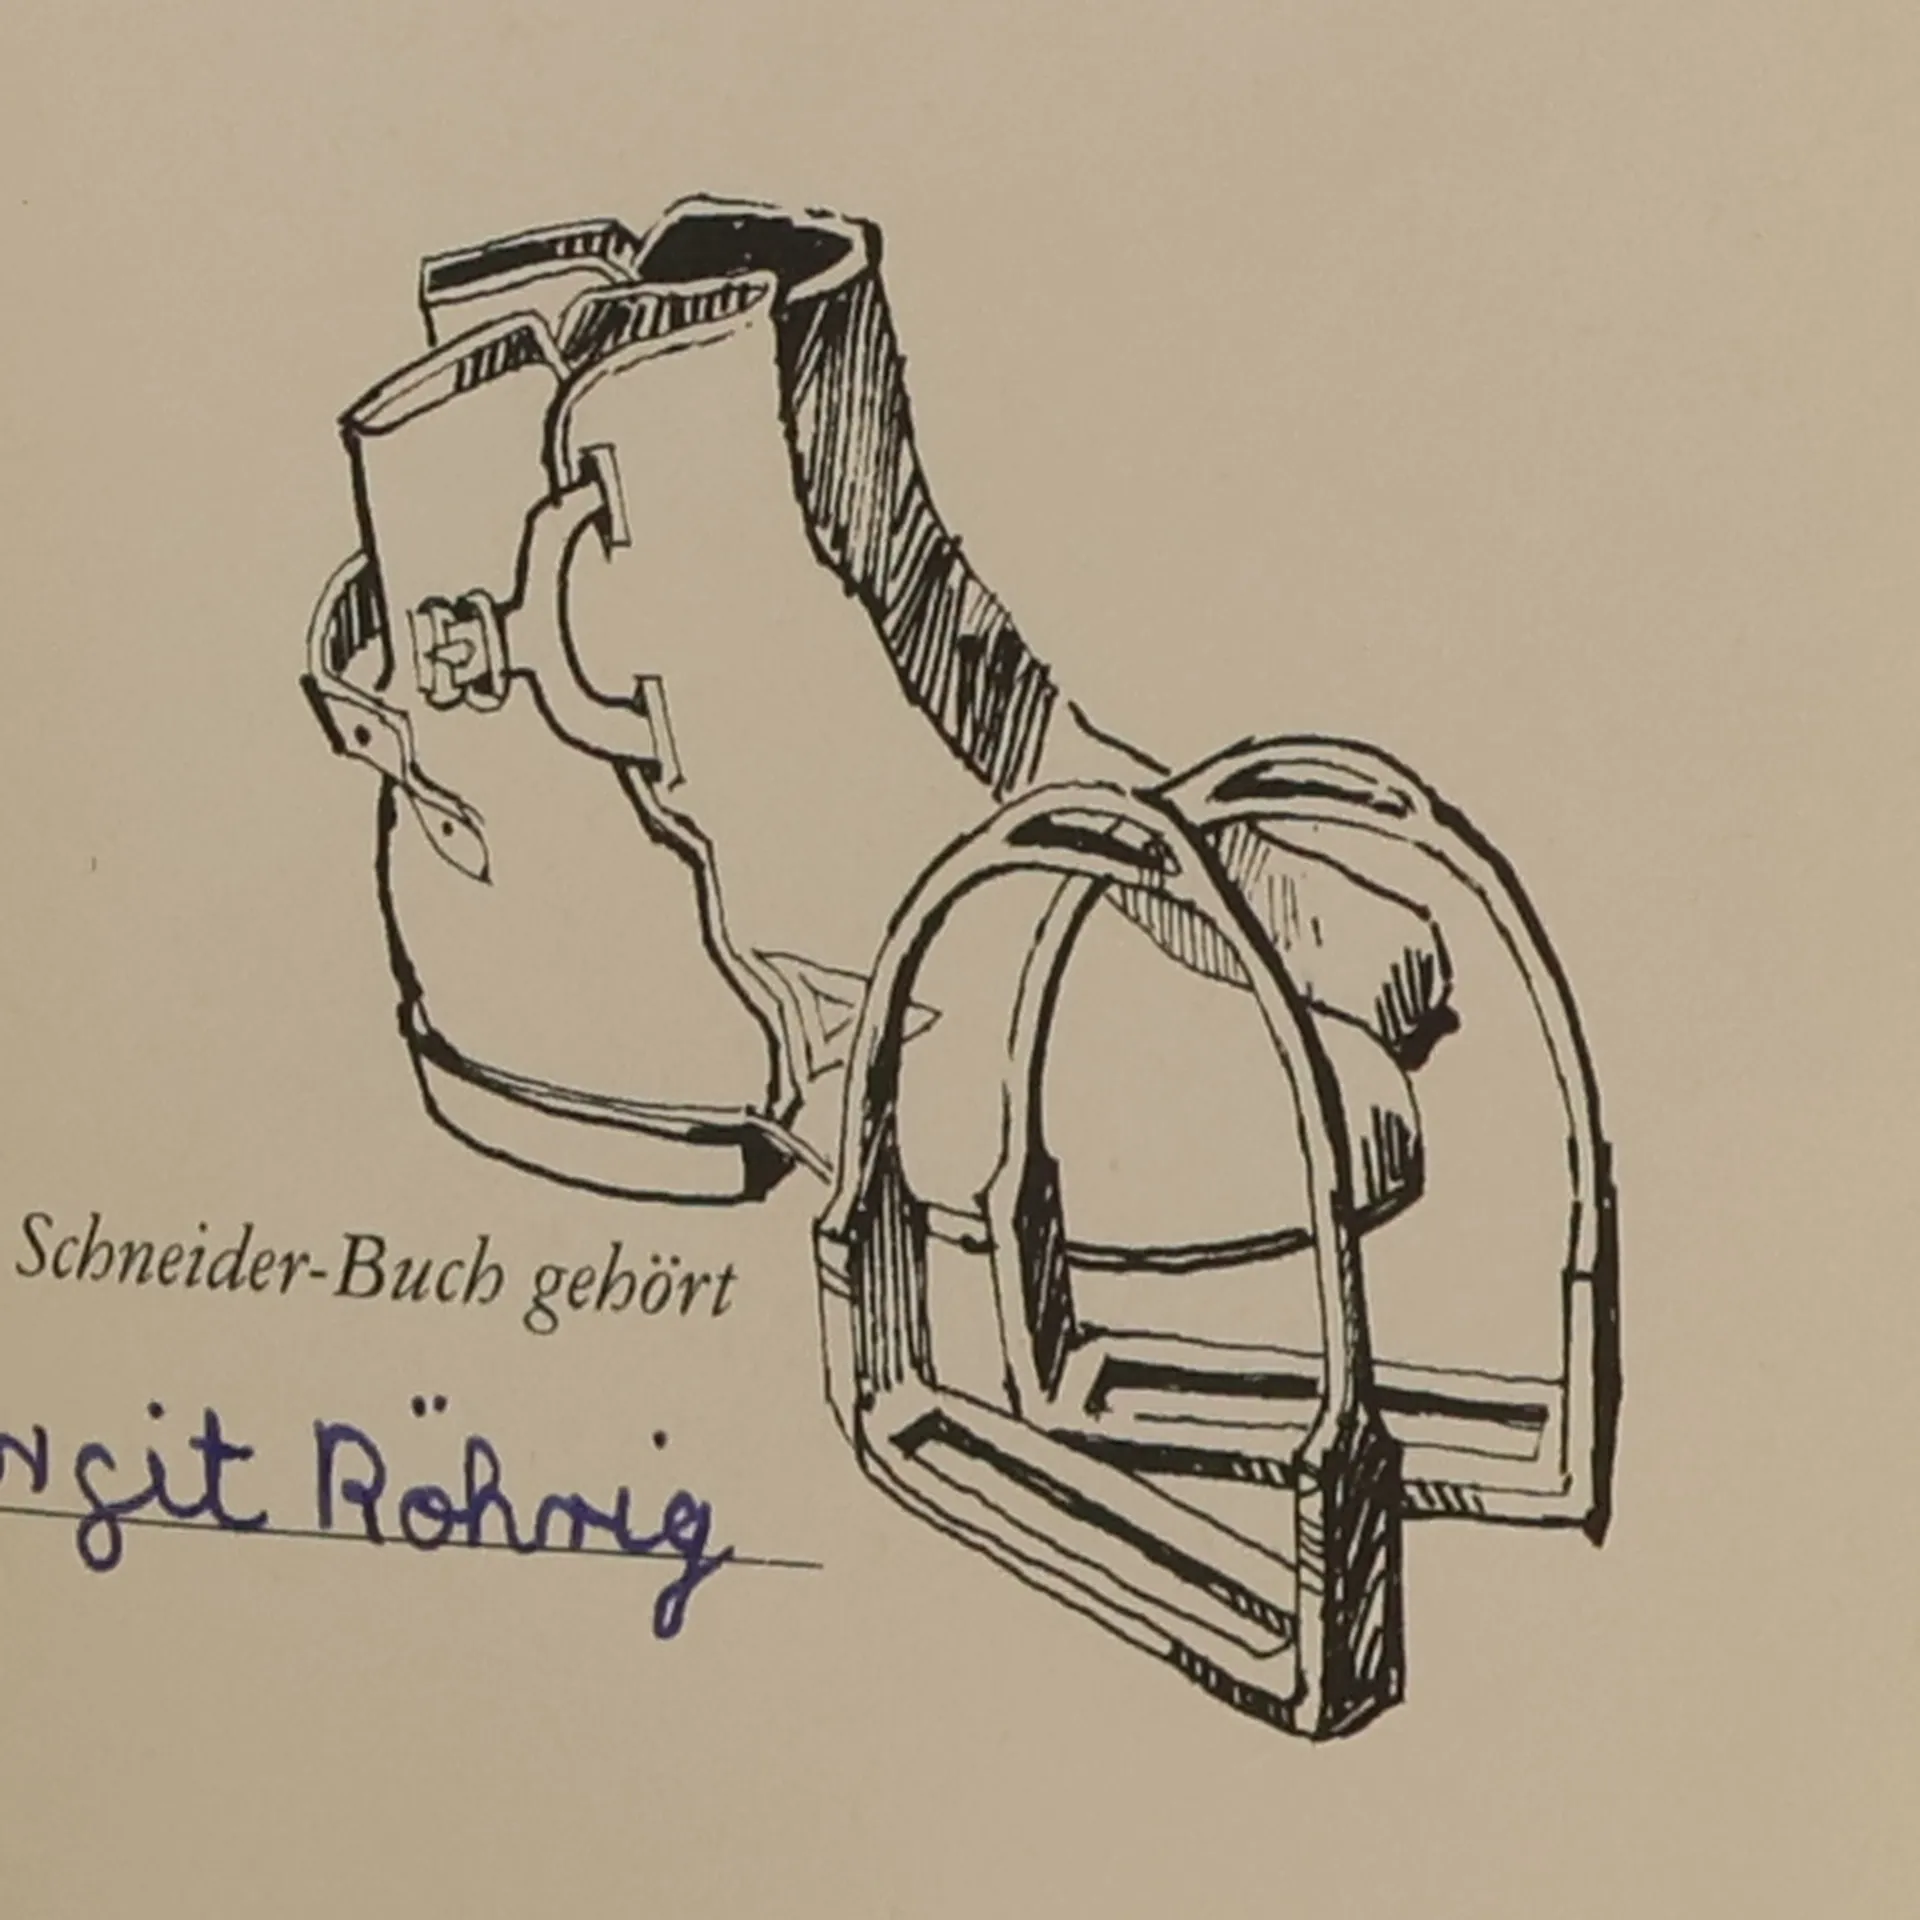 Schneider-Buch gehört
rgit Röhrig